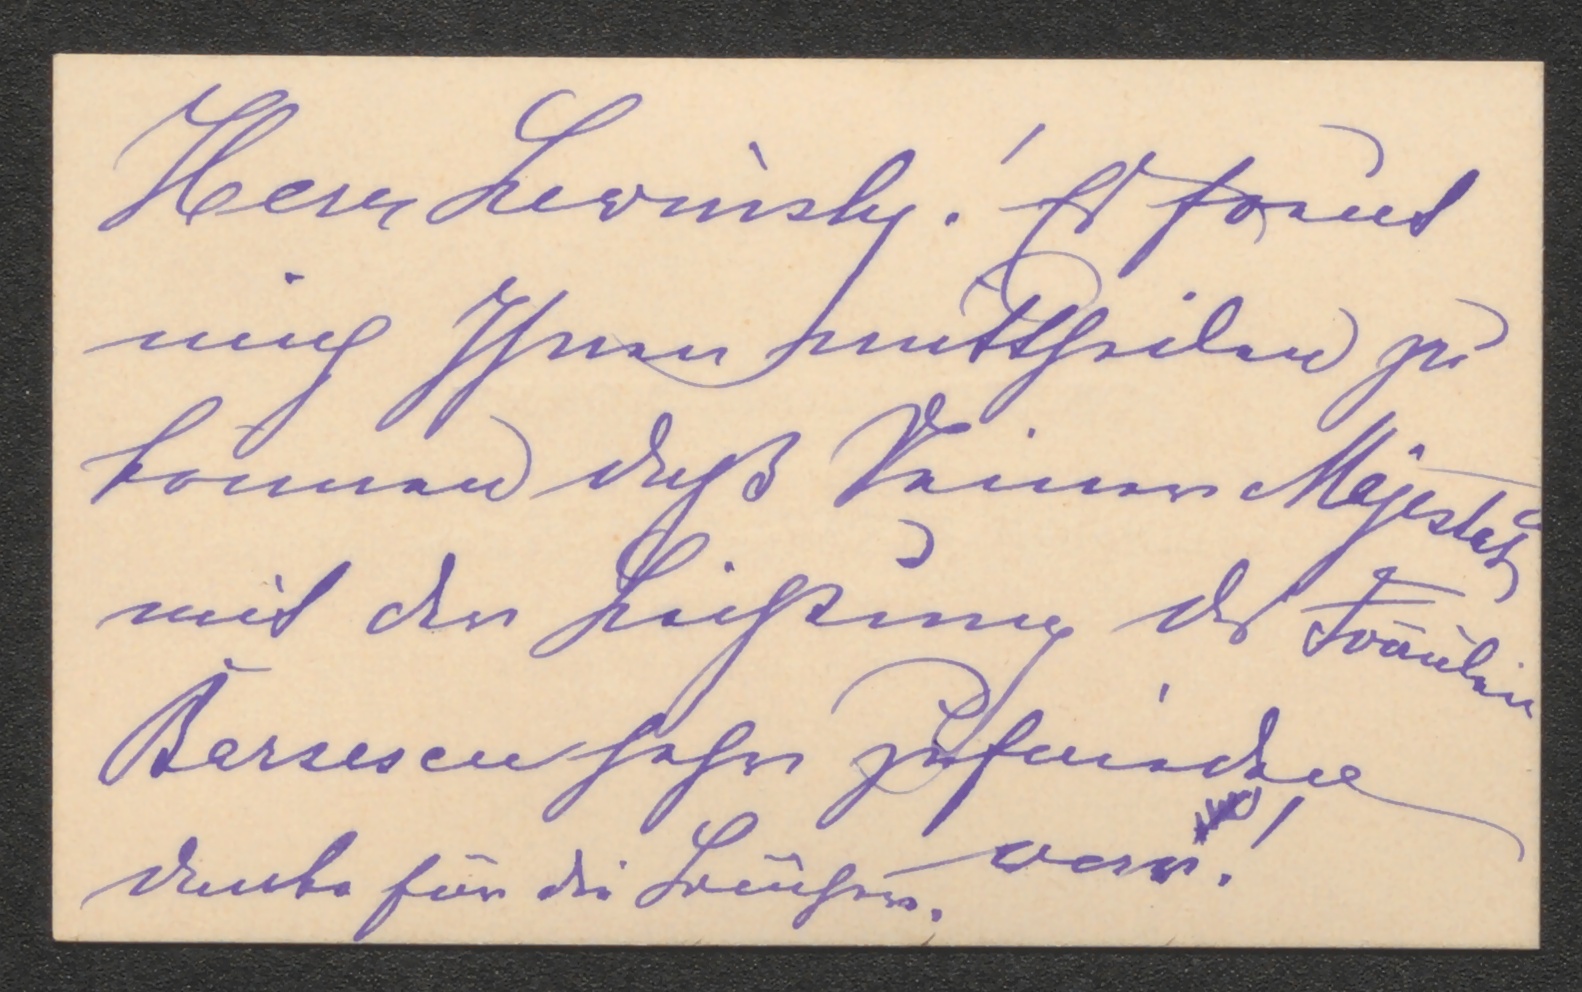 Herr Lewinsky! Es freut
mich Ihnen mittheilen zu
können daß Seine Majestät
mit der Leistung des Fräulein
Barsescu sehr zufrieden
war!
danke für die Bücher.